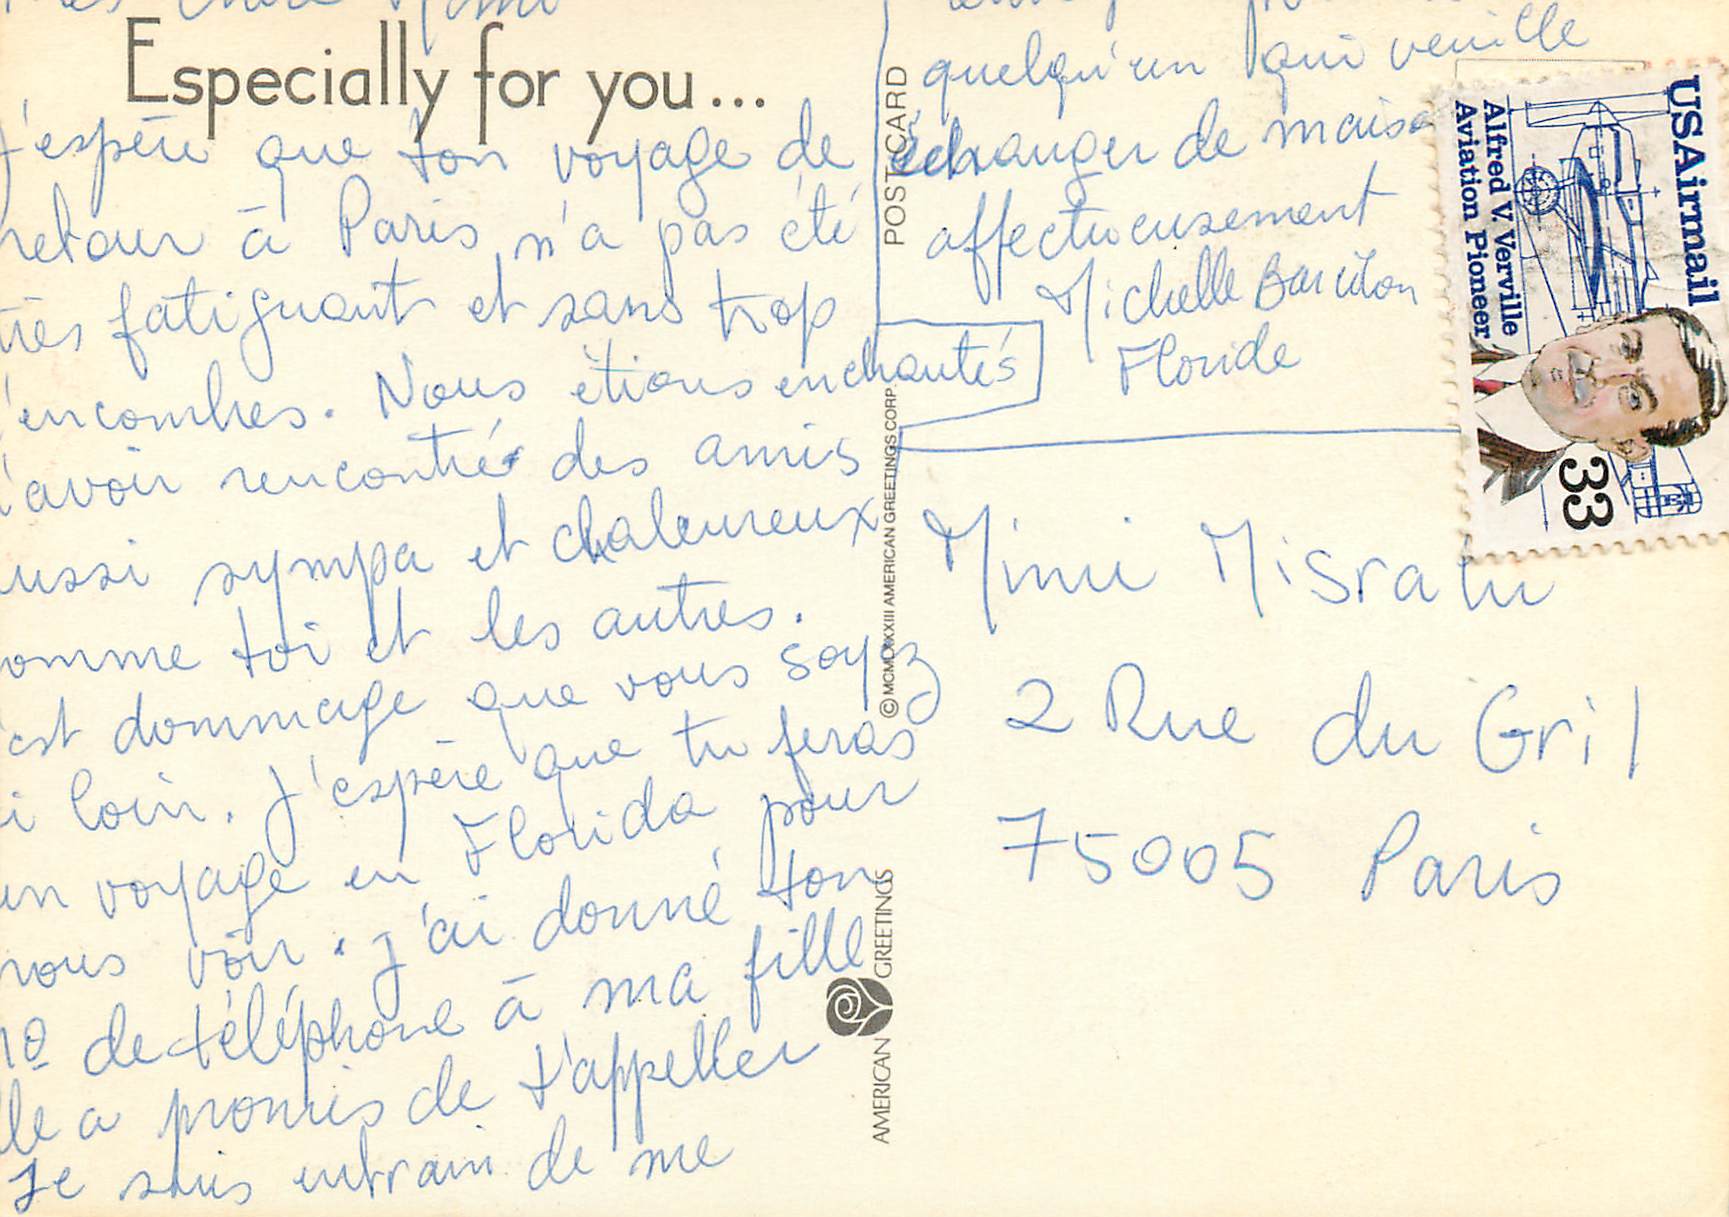 Especially for you...
J'espère que ton voyage de
retour à Paris n'a pas été
très fatiguant et sans trop
d'encombres. Nous étions enchantés
d'avoir rencontrés des amis
aussi sympa et chaleureux
comme toi et les autres.
C'est dommage que vous soyez
si loin. J'espère que tu feras
un voyage en Florida pour
nous voir. J'ai donné ton
no de téléphone à ma fille
Elle a promis de t'appeller
Je suis entrain de me
quelqu'un qui veuille
échanger de maison
affectueusement
Michelle
Floride
POST CARD
© MCMLXXXIII AMERICAN GREETINGS CORP.
AMERICAN GREETINGS
USAirmail
Alfred V. Verville
Aviation Pioneer
33
Mimi Misrahi
2 Rue du Gril
75005 Paris